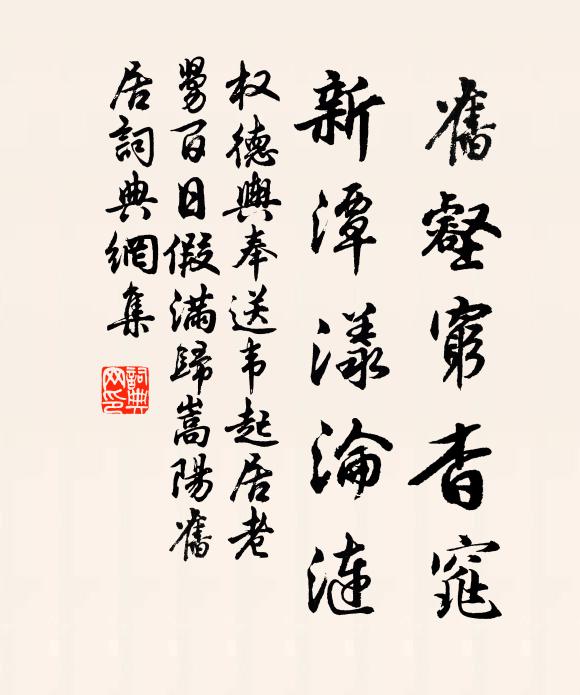 舊壑窮杳窕
新潭漾淪漣
权德輿奉送韦起居老
舅百日假滿歸嵩陽舊
居詞典網集
詞典网印